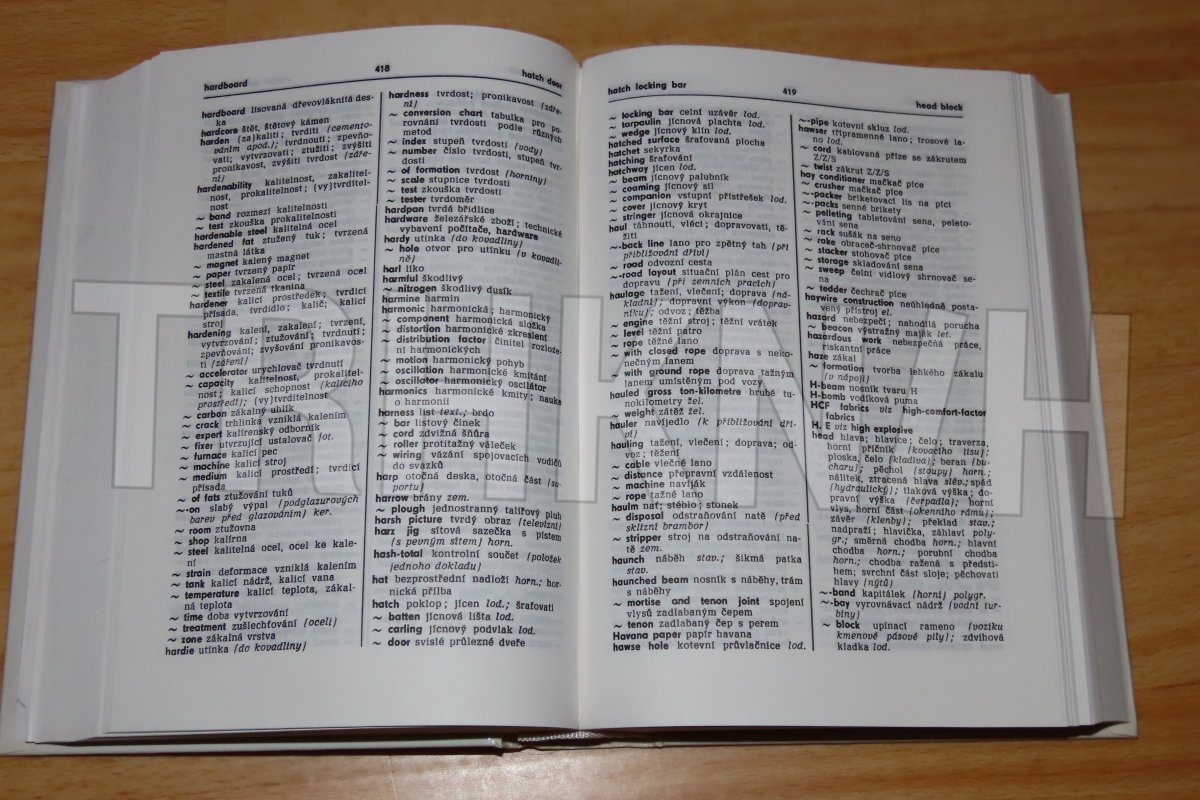 hardboard 418 hatch door
hardboard lisovaná dřevovláknitá des-
ka
hardcore štět, štětový kámen
harden (za)kalit(i); tvrditi (cemento-
váním apod.); tvrdnouti; zpevňo-
vati; vytvrzovati; ztužiti; zvýšiti
pronikavost, zvýšiti tvrdost (záře-
ní)
hardenability kalitelnost, zakalitel-
nost, prokalitelnost; (vy)tvrditel-
nost
~ band rozmezí kalitelnosti
~ test zkouška prokalitelnosti
hardenable steel kalitelná ocel
hardened fat ztužený tuk; tvrzená
mastná látka
~ magnet kalený magnet
~ paper tvrzený papír
~ steel zakalená ocel; tvrzená ocel
~ textile tvrzená tkanina
hardener kalicí prostředek; tvrdicí
přísada, tvrdidlo; kalič; kalicí
stroj
hardening kalení, zakalení; tvrzení,
vytvrzování; ztužování; tvrdnutí;
zpevňování; zvyšování pronikavos-
ti (záření)
~ accelerator urychlovač tvrdnutí
~ capacity kalitelnost, prokalitel-
nost; kalicí schopnost (kalicího
prostředí); (vy)tvrditelnost
~ carbon zákalný uhlík
~ crack trhlinka vzniklá kalením
~ expert kalírenský odborník
~ fixer utvrzující ustalovač fot.
~ furnace kalicí pec
~ machine kalicí stroj
~ medium kalicí prostředí; tvrdicí
přísada
~ of fats ztužování tuků
~-on slabý výpal (podglazurových
barev před glazováním) ker.
~ room ztužovna
~ shop kalírna
~ steel kalitelná ocel, ocel ke kale-
ní
~ strain deformace vzniklá kalením
~ tank kalicí nádrž, kalicí vana
~ temperature kalicí teplota, zákal-
ná teplota
~ time doba vytvrzování
~ treatment zušlechťování (oceli)
~ zone zákalná vrstva
hardie utínka (do kovadliny)
hardness tvrdost; pronikavost (záře-
ní)
~ conversion chart tabulka pro po-
rovnání tvrdosti podle různých
metod
~ index stupeň tvrdosti (vody)
~ number číslo tvrdosti, stupeň tvr-
dosti
~ of formation tvrdost (horniny)
~ scale stupnice tvrdosti
~ test zkouška tvrdosti
~ tester tvrdoměr
hardpan tvrdá břidlice
hardware železářské zboží; technické
vybavení počítače, hardware
hardy utínka (do kovadliny)
~ hole otvor pro utínku (v kovadli-
ně)
harl líko
harmful škodlivý
~ nitrogen škodlivý dusík
harmine harmin
harmonic harmonická; harmonický
~ component harmonická složka
~ distortion harmonické zkreslení
~ distribution factor činitel rozlože-
ní harmonických
~ motion harmonický pohyb
~ oscillation harmonické kmitání
~ oscillator harmonický oscilátor
harmonics harmonické kmity; nauka
o harmonii
harness list text.; brdo
~ bar listový činek
~ cord zdvižná šňůra
~ roller protitažný váleček
~ wiring vázání spojovacích vodičů
do svazků
harp otočná deska, otočná část (su-
portu)
harrow brány zem.
~ plough jednostranný talířový pluh
harsh picture tvrdý obraz (televizní)
harz jig sítová sazečka s pístem
(s pevným sítem) horn.
hash-total kontrolní součet (položek
jednoho dokladu)
hat bezprostřední nadloží horn.; hor-
nická přilba
hatch poklop; jícen lod.; šrafovati
~ batten jícnová lišta lod.
~ carling jícnový podvlak lod.
~ door svislé průlezné dveře
hatch locking bar 419 head block
~ locking bar celní uzávěr lod.
~ tarpaulin jícnová plachta lod.
~ wedge jícnový klín lod.
hatched surface šrafovaná plocha
hatchet sekyrka
hatching šrafování
hatchway jícen lod.
~ beam jícnový palubník
~ coaming jícnový sil
~ companion vstupní přístřešek lod.
~ cover jícnový kryt
~ stringer jícnová okrajnice
haul táhnouti, vléci; dopravovati, tě-
žiti
~-back line lano pro zpětný tah (při
přibližování dříví)
~ road odvozní cesta
~-road layout situační plán cest pro
dopravu (při zemních pracích)
haulage tažení, vlečení; doprava (ná-
kladní); dopravní výkon (doprav-
níku); odvoz; těžba
~ engine těžní stroj; těžní vrátek
~ level těžní patro
~ rope těžné lano
~ with closed rope doprava s neko-
nečným lanem
~ with ground rope doprava tažným
lanem umístěným pod vozy
hauled gross ton-kilometre hrubé tu-
nokilometry žel.
~ weight zátěž žel.
hauler navíjedlo (k přibližování dří-
ví)
hauling tažení, vlečení; doprava; od-
voz; těžení
~ cable vlečné lano
~ distance přepravní vzdálenost
~ machine naviják
~ rope tažné lano
haulm nať; stéblo; stonek
~ disposal odstraňování natě (před
sklizní brambor)
~ stripper stroj na odstraňování na-
tě zem.
haunch náběh stav.; šikmá patka
stav.
haunched beam nosník s náběhy, trám
s náběhy
~ mortise and tenon joint spojení
vlysů zadlabaným čepem
~ tenon zadlabaný čep s perem
Havana paper papír havana
hawse hole kotevní průvlačnice lod.
~-pipe kotevní skluz lod.
hawser třípramenné lano; trosové la-
no lod.
~ cord kablovaná příze se zákrutem
Z/Z/S
~ twist zákrut Z/Z/S
hay conditioner mačkač píce
~ crusher mačkač píce
~-packer briketovací lis na píci
~-packs senné brikety
~ pelleting tabletování sena, peleto-
vání sena
~ rack sušák na seno
~ rake obraceč-shrnovač píce
~ stacker stohovač píce
~ storage skladování sena
~ sweep čelní vidlový shrnovač se-
na
~ tedder čechrač píce
haywire construction neúhledně posta-
vený přístroj el.
hazard nebezpečí; nahodilá porucha
~ beacon výstražný maják let.
hazardous work nebezpečná práce,
riskantní práce
haze zákal
~ formation tvorba lehkého zákalu
(v nápoji)
H-beam nosník tvaru H
H-bomb vodíková puma
HCF fabrics viz high-comfort-factor
fabrics
H. E viz high explosive
head hlava; hlavice; čelo; traverza,
horní příčník (kovacího lisu);
ploska, čelo (kladiva); beran (bu-
charu); pěchol (stoupy) horn.;
nálitek, ztracená hlava slév.; spád
(hydraulický); tlaková výška; do-
pravní výška (čerpadla); horní
vlys, horní část (okenního rámu);
závěr (klenby); překlad stav.;
nadpraží; hlavička, záhlaví polyg-
gr.; směrná chodba horn.; hlavní
chodba horn.; porubní chodba
horn.; chodba ražená s předsti-
hem; svrchní část sloje; pěchovati
hlavy (nýtů)
~-band kapitálek (horní) polygr.
~-bay vyrovnávací nádrž (vodní tur-
bíny)
~ block upínací rameno (vozíku
kmenové pásové pily); zdvihová
kladka lod.